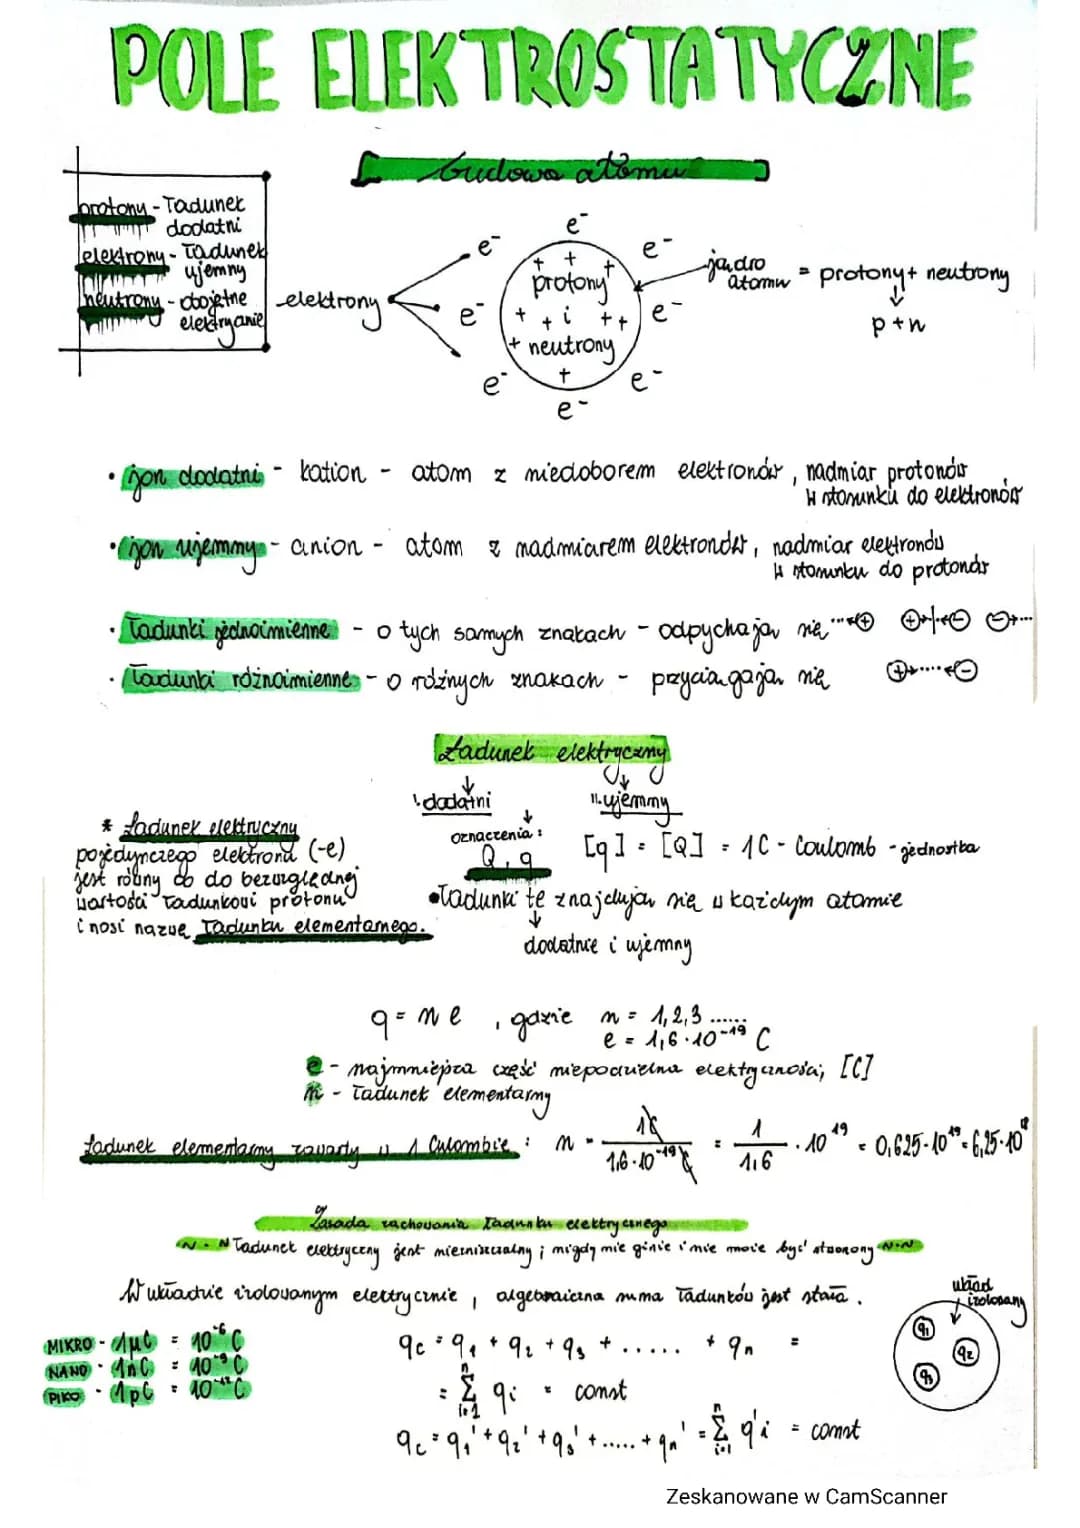 POLE ELEKTROSTATYCZNE
budowa atomu
protony - ładunek
dodatni
elektrony - ładunek
ujemny
neutrony - obojętne
elektrycznie
elektrony
e⁻
e⁻
e⁻
e⁻
e⁻
e⁻
e⁻
e⁻
+ + +
protony
+ + i + +
+ neutrony
+
jądro
atomu
= protony + neutrony
p + n
• jon dodatni - kation - atom z niedoborem elektronów, nadmiar protonów
w stosunku do elektronów
• jon ujemny - anion - atom z nadmiarem elektronów, nadmiar elektronów
w stosunku do protonów
• Ładunki jednoimienne - o tych samych znakach - odpychają się
• Ładunki różnoimienne - o różnych znakach - przyciągają się
Ładunek elektryczny
I. dodatni
II. ujemny
* Ładunek elektryczny
pojedynczego elektronu (-e)
jest równy co do bezwzględnej
wartości ładunkowi protonu
i nosi nazwę ładunku elementarnego.
oznaczenia:
Q, q
[q] = [Q] = 1C - Coulomb - jednostka
• Ładunki te znajdują się w każdym atomie
dodatnie i ujemny
q = n e , gdzie n = 1,2,3 ......
e = 1,6 · 10⁻¹⁹ C
e - najmniejsza część niepodzielna elektryczności, [C]
n - ładunek elementarny
Ładunek elementarny zawarty w 1 Culombie : n = 1C / 1,6·10⁻¹⁹ C = 1 / 1,6 · 10¹⁹ = 0,625·10¹⁹ = 6,25·10¹⁸
Zasada zachowania ładunku elektrycznego
~ · ~ Ładunek elektryczny jest niezniszczalny ; nigdy nie ginie i nie może być stworzony ~·~
W układzie izolowanym elektrycznie , algebraiczna suma ładunków jest stała .
układ
izolowany
q₁
q₂
q₃
MIKRO - 1μC = 10⁻⁶ C
NANO - 1nC = 10⁻⁹ C
PIKO - 1pC = 10⁻¹² C
qc = q₁ + q₂ + q₃ + ..... + qn =
= Σ qi = const
n
i=1
qc = q₁' + q₂' + q₃' + ..... + qn' = Σ q'i = const
n
i=1
Zeskanowane w CamScanner